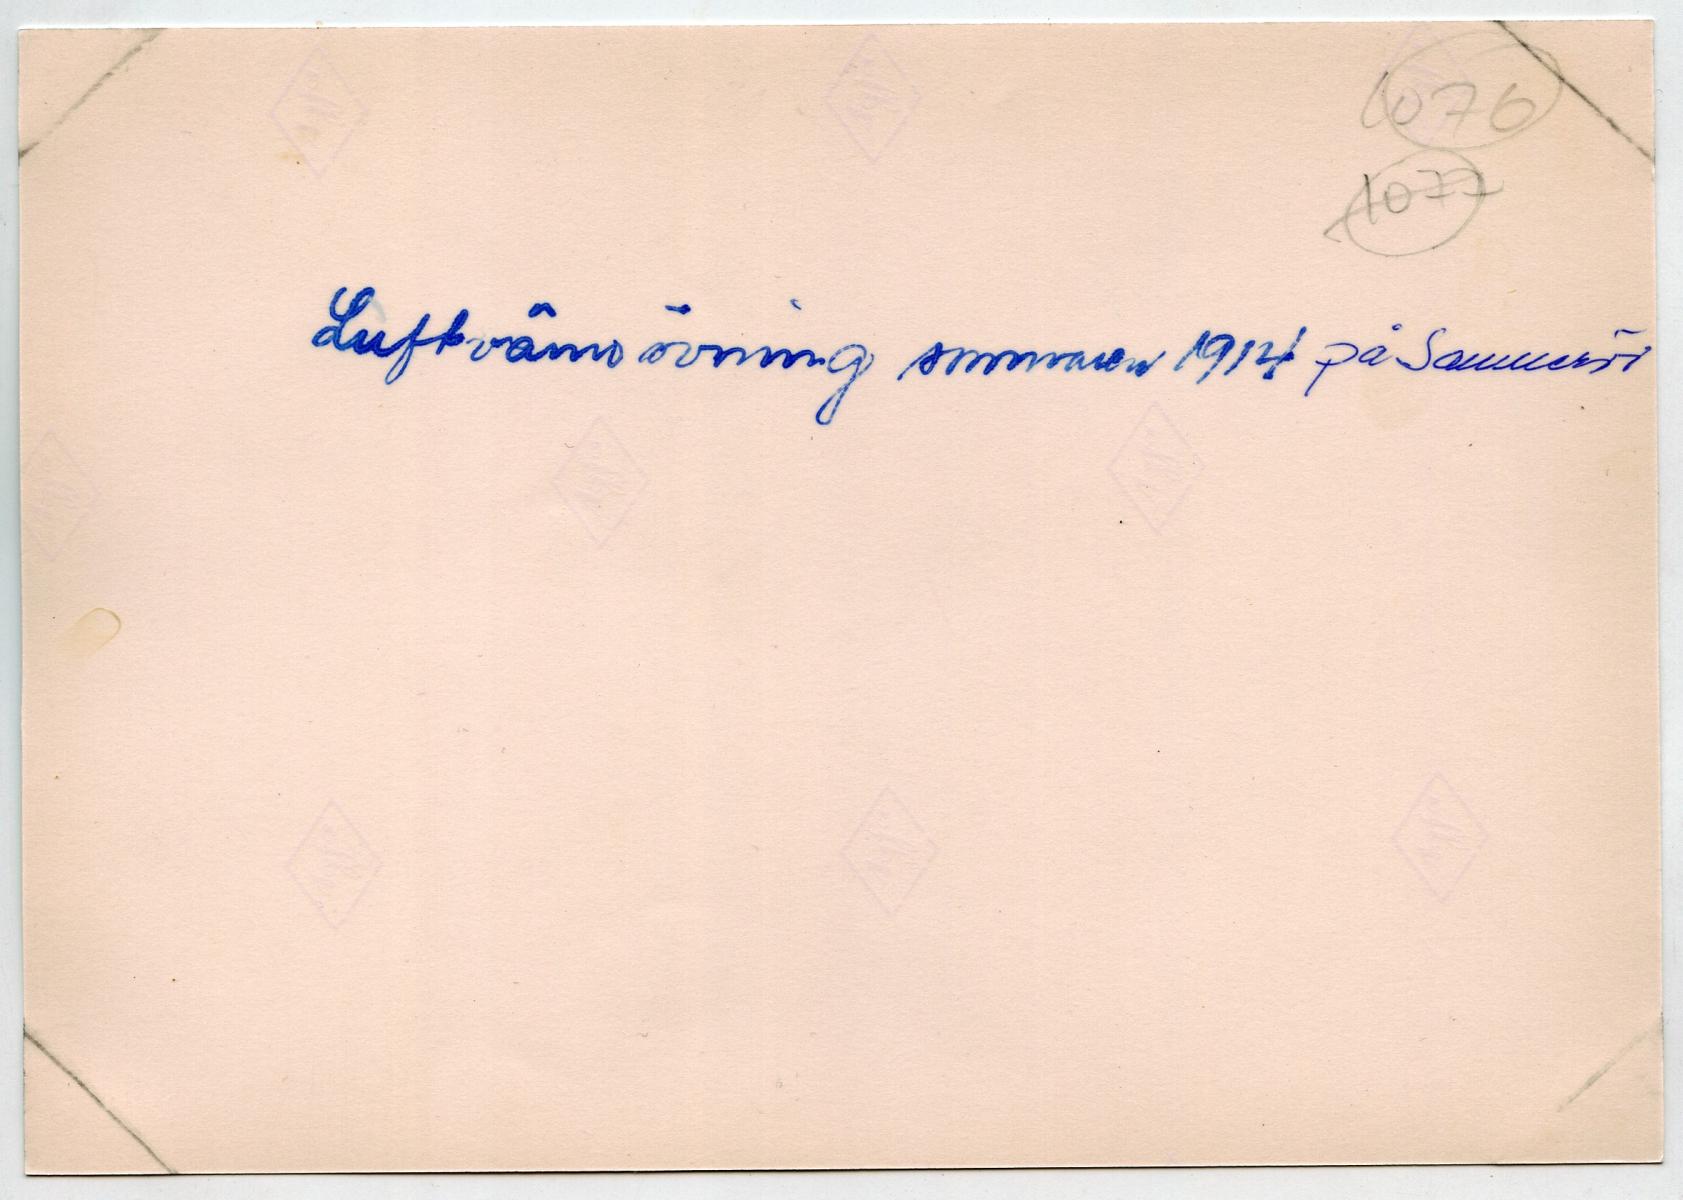 1076
1077
Luftvärnsövning sommaren 1914 på